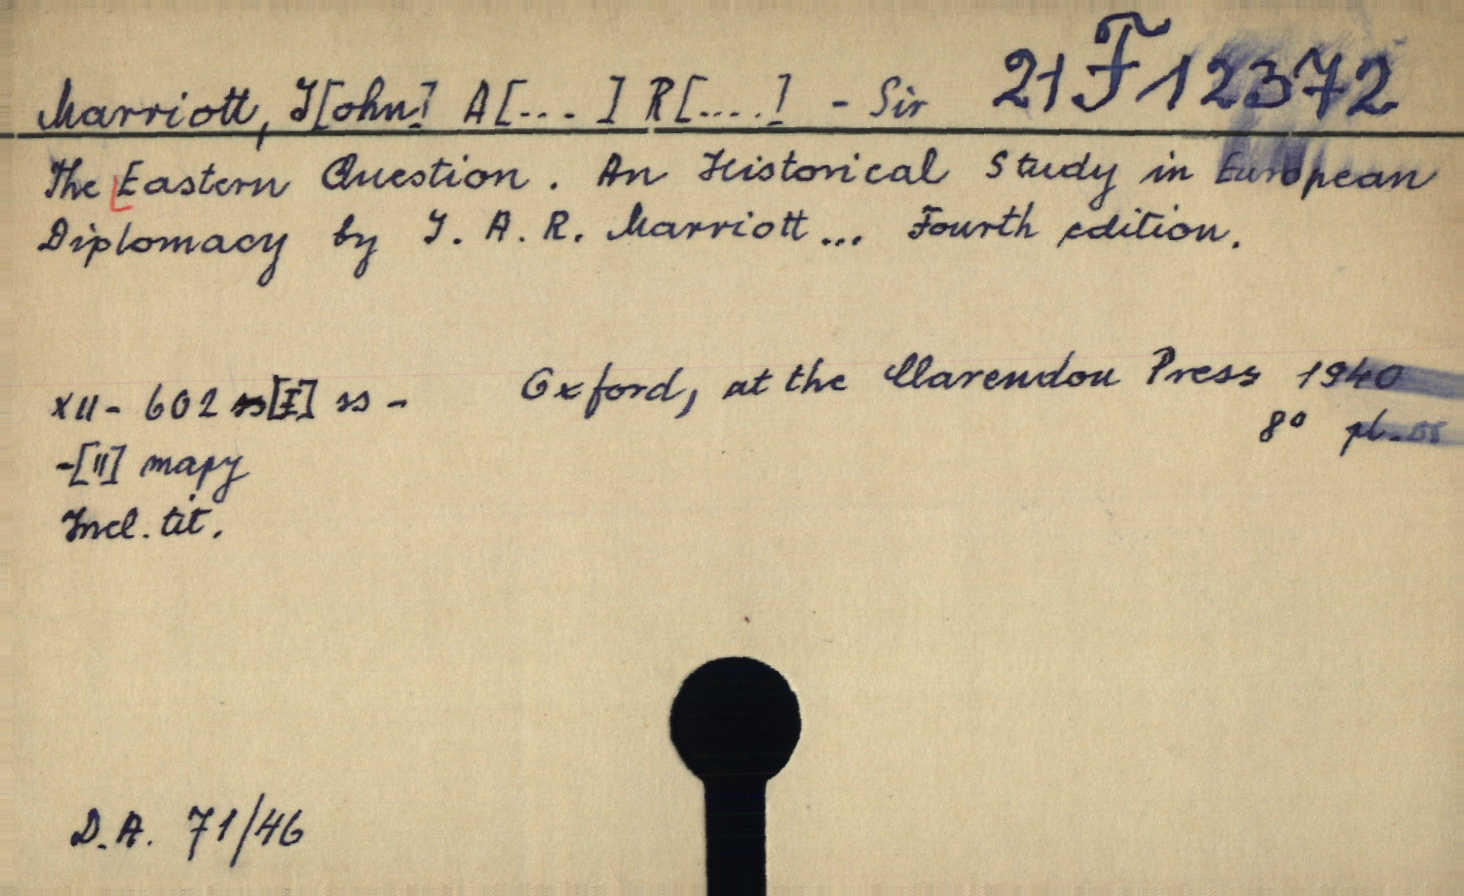 Marriott, J[ohn] A[....] R[....] - Sir 21 F 12372
The Eastern Question. An Historical Study in European
Diplomacy by J. A. R. Marriott... Fourth edition.
Oxford, at the Clarendon Press 1940
8° pł. ss
XII - 602 ss [I] ss -
-[II] mapy
Incl. tit.
D.A. 71/46